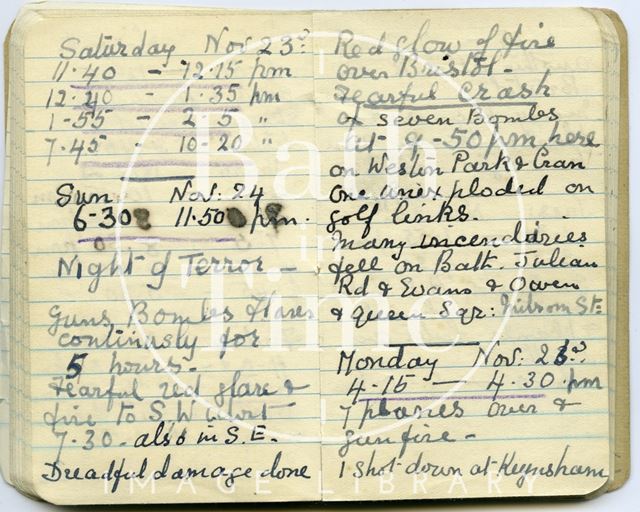 Saturday Nov 23rd
11.40 - 12.15 pm
12.40 - 1.35 pm
1-55 - 2.5 "
7.45 - 10-20 "
Sun. Nov: 24
6-30 11.50 pm.
Night of Terror -
Guns Bombs Flares
continusly for
5 hours.
Fearful red glare &
fire to S W about
7.30. also in S.E.
Dreadful damage done
Red glow of fire
over Bristol -
Fearful crash
of seven Bombs
at 9-50 pm here
on Weston Park & Cran
One unexploded on
golf links.
Many incendiaries
fell on Bath. Julian
Rd & Evans & Owen
& Queen Sqr: St:
Monday Nov: 25
4-15 - 4.30 pm
7 planes over &
gunfire -
1 shot down at Keynsham
Bath
in
Time
IMAGE LIBRARY